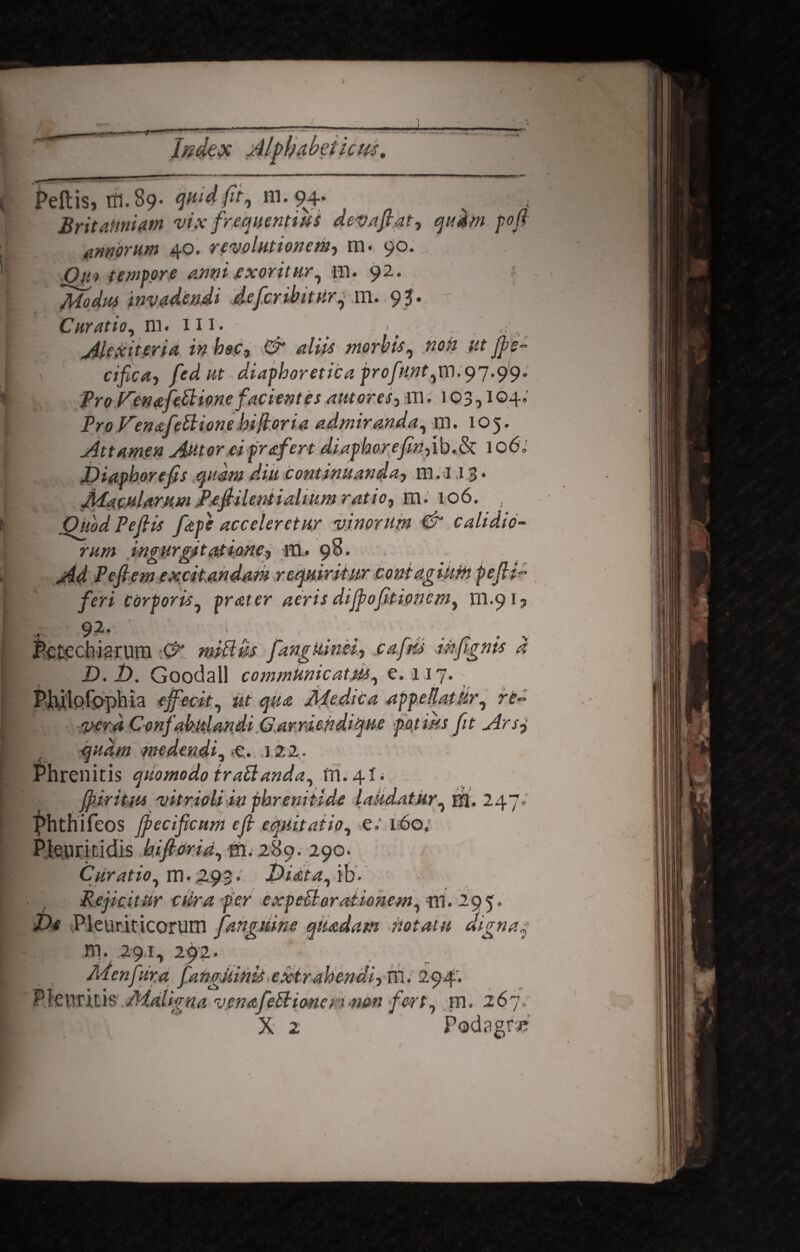 Index Alphabeticus.
Pestis, m. 89. quid sit, m. 94.
Britanniam vix frequentius devastat, quàm post
annorum 40. revolutionem, m. 90.
Quo tempore anni exoritur, m. 92.
Modus invadendi describitur, m. 93.
Curatio, m. 111.
Alexiteria in hoc, & aliis morbis, non ut spe-
cifica, sed ut diaphoretica prosunt, m. 97. 99.
Pro Venæsectione facientes autores, m. 103, 104.
Pro Venæsectione historia admiranda, m. 105.
Attamen Autor ei præfert diaphoresin, ib. & 106.
Diaphoresis quàm diu continuanda, m. 113.
Macularum Pestilentialium ratio, m. 106.
Quod Pestis sæpè acceleretur vinorum & calidio-
rum ingurgitatione, m. 98.
Ad Pestem excitandam requiritur contagium pesti-
feri corporis, præter aeris dispositionem, m. 91,
92.
Petechiarum & mictûs sanguinei, casus insignis à
D. D. Goodall communicatus, e. 117.
Philosophia effecit, ut quæ Medica appellatur, re-
verà Confabulandi Garriendique potius sit Ars,
quàm medendi, e. 122.
Phrenitis quomodo tractanda, m. 41.
spiritus vitrioli in phrenitide laudatur, m. 247.
Phthiseos specificum est equitatio, e. 160.
Pleuritidis historia, m. 289. 290.
Curatio, m. 293. Diæta, ib.
Rejicitur cura per expectorationem, m. 295.
De Pleuriticorum sanguine quædam notatu digna,
m. 291, 292.
Mensura sanguinis extrahendi, m. 294.
Pleuritis Maligna venæsectionem non fert, m. 267.
X 2 Podagræ